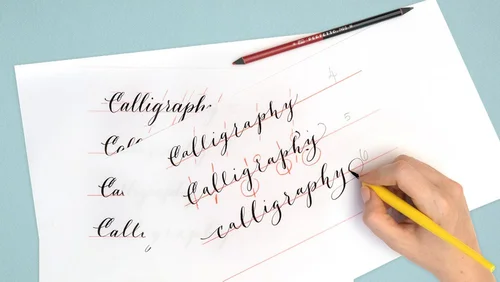 Calligraph
Ca
Call
Calligraphy 4
Calligraphy 5
calligraphy 6